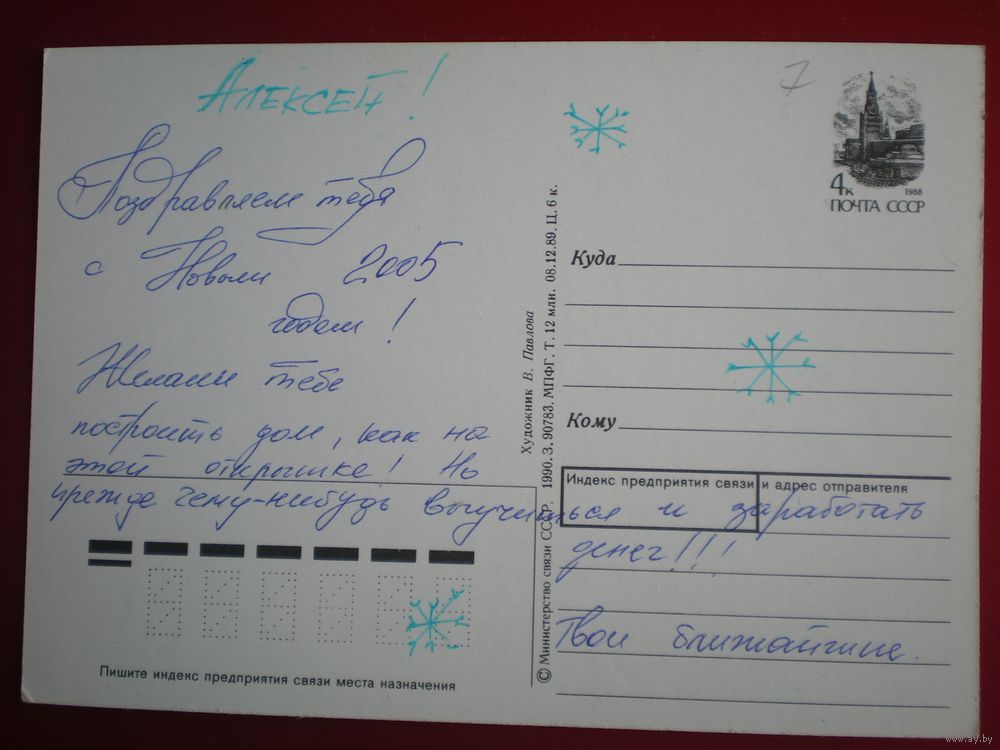 Алексей!
Поздравляем тебя
с Новым 2005
годом!
Желаем тебе
построить дом, как на
этой открытке! Но
прежде чему-нибудь выучиться и заработать
денег!!!
Твои ближайшие.
7
4к 1988
ПОЧТА СССР
Куда
Кому
Индекс предприятия связи и адрес отправителя
Пишите индекс предприятия связи места назначения
Художник В. Павлова
© Министерство связи СССР. 1990. З. 90783. МПФГ. Т. 12 млн. 08.12.89. Ц. 6 к.
www.ay.by